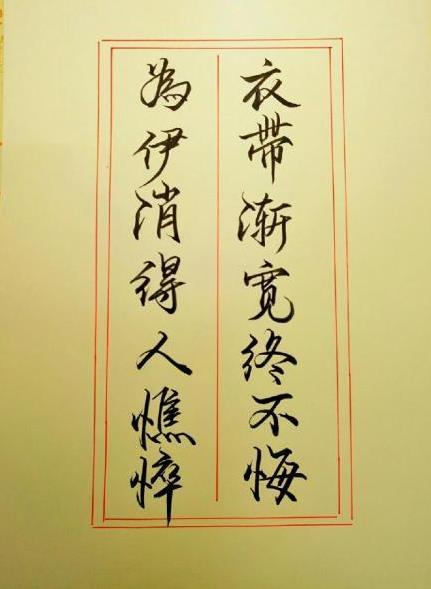 衣帶渐宽终不悔
為伊消得人憔悴